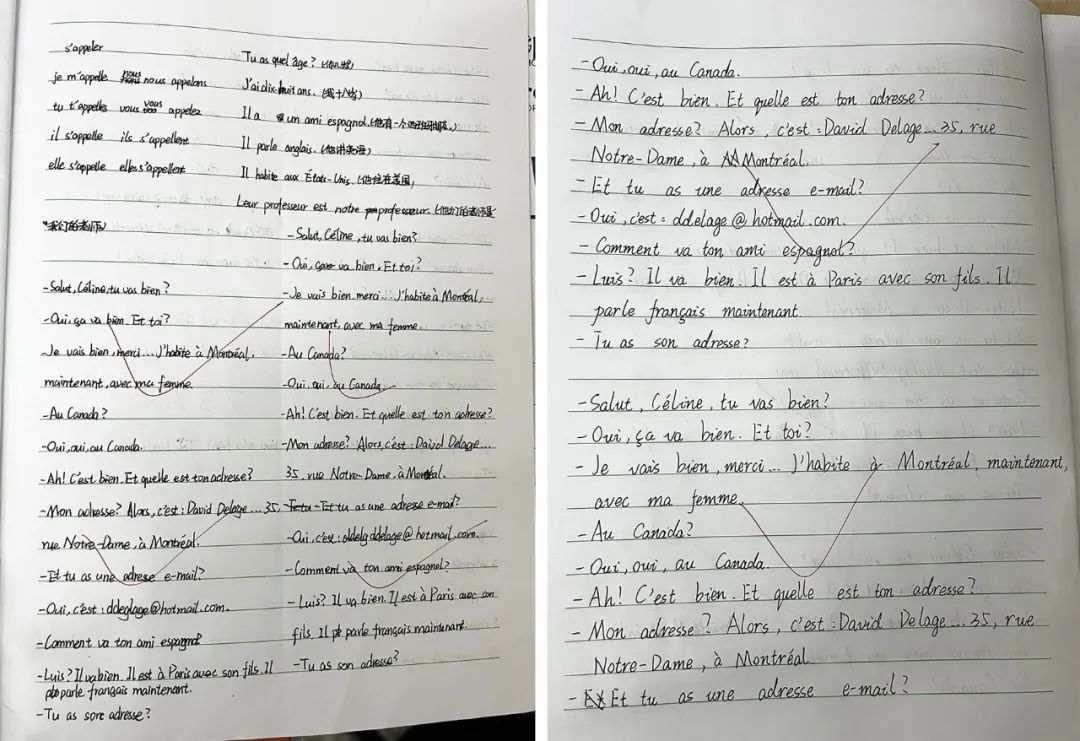 s'appeler
je m'appelle nous appelons
tu t'appelles vous vous appelez
il s'appelle ils s'appellent
elle s'appelle elles s'appellent
Tu as quel âge?
J'ai dix-huit ans. (我十八岁)
Il a un ami espagnol.
Il parle anglais. (他讲英语)
Il habite aux États-Unis. (他住在美国)
Leur professeur est notre professeur. (他们的老师是
我们的老师)
-Salut, Céline, tu vas bien?
-Oui, ça va bien. Et toi?
Je vais bien, merci... J'habite à Montréal,
maintenant, avec ma femme.
-Au Canada?
-Oui, oui, au Canada.
-Ah! C'est bien. Et quelle est ton adresse?
-Mon adresse? Alors, c'est: David Delage... 35,
rue Notre-Dame, à Montréal.
-Et tu as une adresse e-mail?
-Oui, c'est: ddeglage@hotmail.com.
-Comment va ton ami espagnol?
-Luis? Il va bien. Il est à Paris avec son fils. Il
parle français maintenant.
-Tu as son adresse?
-Salut, Céline, tu vas bien?
-Oui, va bien. Et toi?
-Je vais bien, merci... J'habite à Montréal,
maintenant, avec ma femme.
-Au Canada?
-Oui, oui, au Canada.
-Ah! C'est bien. Et quelle est ton adresse?
-Mon adresse? Alors, c'est: David Delage...
35, rue Notre-Dame, à Montréal.
-Et tu as une adresse e-mail?
-Oui, c'est: ddelage@hotmail.com.
-Comment va ton ami espagnol?
-Luis? Il va bien. Il est à Paris avec son
fils. Il parle français maintenant.
-Tu as son adresse?
-Oui, oui, au Canada.
-Ah! C'est bien. Et quelle est ton adresse?
-Mon adresse? Alors, c'est: David Delage... 35, rue
Notre-Dame, à Montréal.
-Et tu as une adresse e-mail?
-Oui, c'est: ddelage@hotmail.com.
-Comment va ton ami espagnol?
-Luis? Il va bien. Il est à Paris avec son fils. Il
parle français maintenant.
-Tu as son adresse?
-Salut, Céline, tu vas bien?
-Oui, ça va bien. Et toi?
-Je vais bien, merci... J'habite à Montréal, maintenant,
avec ma femme.
-Au Canada?
-Oui, oui, au Canada.
-Ah! C'est bien. Et quelle est ton adresse?
-Mon adresse? Alors, c'est: David Delage... 35, rue
Notre-Dame, à Montréal
-Et tu as une adresse e-mail?